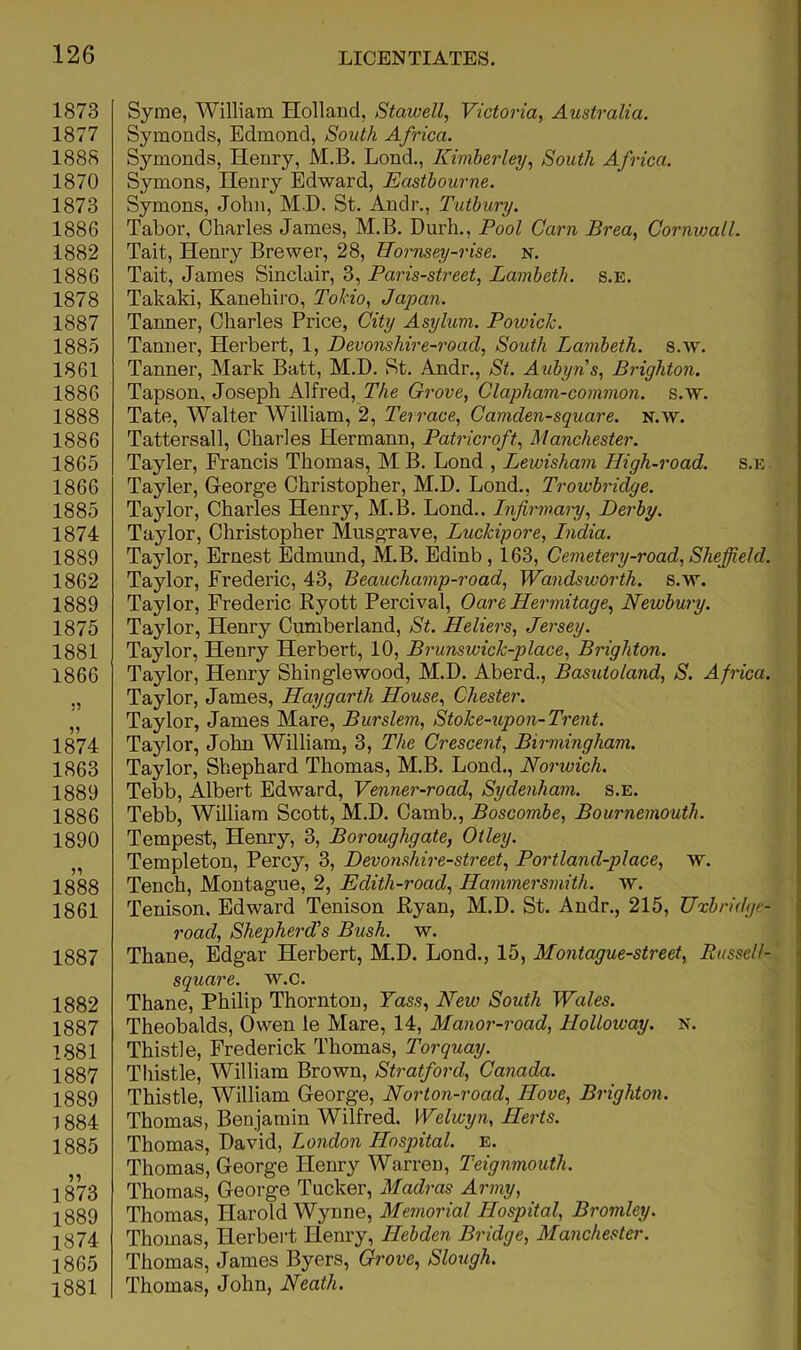 126 LICENTIATES.
1873 Syme, William Holland, Stawell, Victoria, Australia.
1877 Symonds, Edmond, South Africa.
1888 Symonds, Henry, M.B. Lond., Kimberley, South Africa.
1870 Symons, Henry Edward, Eastbourne.
1873 Symons, John, M.D. St. Andr., Tutbury.
1886 Tabor, Charles James, M.B. Durh., Pool Carn Brea, Cornwall.
1882 Tait, Henry Brewer, 28, Hornsey-rise. N.
1886 Tait, James Sinclair, 3, Paris-street, Lambeth. S.E.
1878 Takaki, Kanehiro, Tokio, Japan.
1887 Tanner, Charles Price, City Asylum. Powick.
1885 Tanner, Herbert, 1, Devonshire-road, South Lambeth. S.W.
1861 Tanner, Mark Batt, M.D. St. Andr., St. Aubyn's, Brighton.
1886 Tapson, Joseph Alfred, The Grove, Clapham-common. S.W.
1888 Tate, Walter William, 2, Terrace, Camden-square. N.W.
1886 Tattersall, Charles Hermann, Patricroft, Manchester.
1865 Tayler, Francis Thomas, M B. Lond , Lewisham High-road. S.E
1866 Tayler, George Christopher, M.D. Lond., Trowbridge.
1885 Taylor, Charles Henry, M.B. Lond.. Infirmary, Derby.
1874 Taylor, Christopher Musgrave, Luckipore, India.
1889 Taylor, Ernest Edmund, M.B. Edinb , 163, Cemetery-road, Sheffield.
1862 Taylor, Frederic, 43, Beauchamp-road, Wandsworth. S.W.
1889 Taylor, Frederic Ryott Percival, Oare Hermitage, Newbury.
1875 Taylor, Henry Cumberland, St. Heliers, Jersey.
1881 Taylor, Henry Herbert, 10, Brunswick-place, Brighton.
1866 Taylor, Henry Shinglewood, M.D. Aberd., Basutoland, S. Africa.
„ Taylor, James, Haygarth House, Chester.
„ Taylor, James Mare, Burslem, Stoke-upon-Trent.
1874 Taylor, John William, 3, The Crescent, Birmingham.
1863 Taylor, Shephard Thomas, M.B. Lond., Norwich.
1889 Tebb, Albert Edward, Venner-road, Sydenham. S.E.
1886 Tebb, William Scott, M.D. Camb., Boscombe, Bournemouth.
1890 Tempest, Henry, 3, Boroughgate, Otley.
„ Templeton, Percy, 3, Devonshire-street, Portland-place, W.
1888 Tench, Montague, 2, Edith-road, Hammersmith. W.
1861 Tenison, Edward Tenison Ryan, M.D. St. Andr., 215, Uxbridge-
road, Shepherd's Bush. W.
1887 Thane, Edgar Herbert, M.D. Lond., 15, Montague-street, Russell-
square. W.C.
1882 Thane, Philip Thornton, Yass, New South Wales.
1887 Theobalds, Owen le Mare, 14, Manor-road, Holloway. N.
1881 Thistle, Frederick Thomas, Torquay.
1887 Thistle, William Brown, Stratford, Canada.
1889 Thistle, William George, Norton-road, Hove, Brighton.
1884 Thomas, Benjamin Wilfred. Welwyn, Herts.
1885 Thomas, David, London Hospital. E.
„ Thomas, George Henry Warren, Teignmouth.
1873 Thomas, George Tucker, Madras Army,
1889 Thomas, Harold Wynne, Memorial Hospital, Bromley.
1874 Thomas, Herbert Henry, Hebden Bridge, Manchester.
1865 Thomas, James Byers, Grove, Slough.
1881 Thomas, John, Neath.